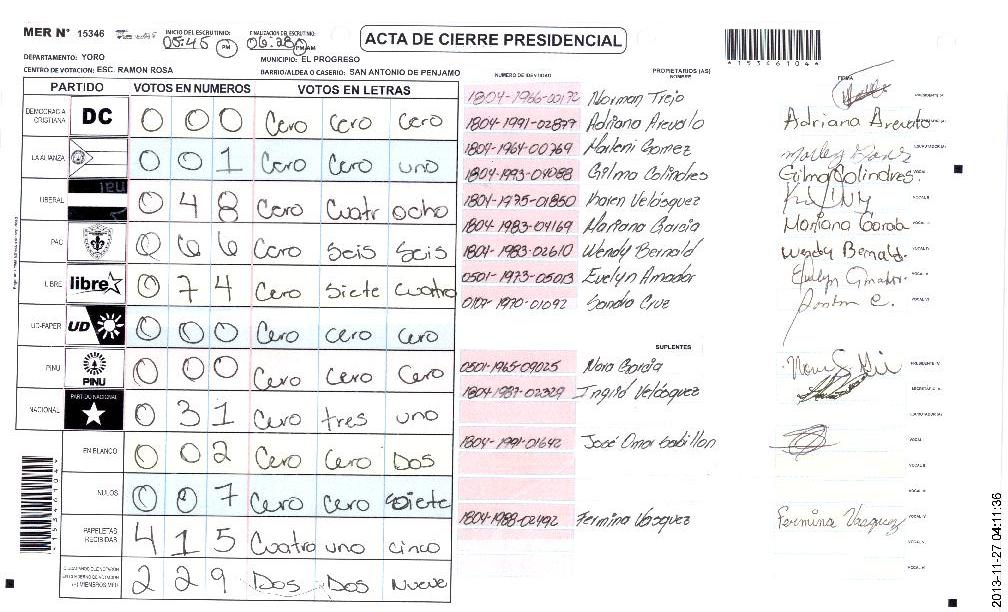 MER N° 15346 INICIO DEL ESCRUTINIO: 05:45 PM FINALIZACION DEL ESCRUTINIO: 06:28 PM AM
ACTA DE CIERRE PRESIDENCIAL
*15346104*
DEPARTAMENTO: YORO MUNICIPIO: EL PROGRESO
CENTRO DE VOTACION: ESC. RAMON ROSA BARRIO/ALDEA O CASERIO: SAN ANTONIO DE PENJAMO
PARTIDO VOTOS EN NUMEROS VOTOS EN LETRAS
DEMOCRACIA CRISTIANA DC 0 0 0 Cero Cero Cero
LA ALIANZA 0 0 1 Cero Cero uno
LIBERAL 0 4 8 Cero Cuatr ocho
PAC 0 6 6 Cero Seis Seis
LIBRE libre 0 7 4 Cero Siete Cuatro
UD-FAPER UD 0 0 0 Cero cero Cero
PINU PINU 0 0 0 Cero Cero Cero
NACIONAL PARTIDO NACIONAL 0 3 1 Cero tres uno
EN BLANCO 0 0 2 Cero Cero Dos
NULOS 0 0 7 Cero cero Siete
PAPELETAS RECIBIDAS 4 1 5 Cuatro uno cinco
2 2 9 Dos Dos Nueve
NUMERO DE IDENTIDAD PROPIETARIOS (AS)
NOMBRE FIRMA
1804-1966-00172 Norman Trejo
1804-1991-02877 Adriana Arevalo Adriana Arevalo
1804-1964-00769 Marleni Gomez
1804-1993-04088 Gilma Colindres Gilma Colindres
1804-1975-01850 Karen Velásquez
1804-1983-04169 Mariana Garcia Mariana Garcia
1804-1983-02610 Wendy Bernald Wendy Bernald
0501-1973-05013 Evelyn Amador Evelyn Amador
0107-1970-01092 Sandra Cruz
SUPLENTES
0501-1965-09025 Nora Garcia
1804-1987-02329 Ingrid Velásquez
1804-1991-01642 José Omar Gabillan
1804-1988-02492 Fermina Vasquez Fermina Vasquez
2013-11-27 04:11:36